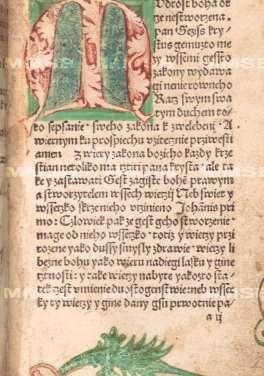 Udrost boha ot
ze nestworzena.
pan Gezijs kry/
stus gemuzto me
zy wssemi gesto
zakony wydawa
gi nenie rowneho
Racz swym swa
tym duchem to/
to sepsanie sweho zakona k zwelebenij A
wiernym ku prospiechu vzitecznie przwiesti
amen Z wiery zakona bozicho kazdy krze
stian netoliko ma cztiti pana krysta ale ta
ke y zastawati Gest zagiste bohē prawym
a stworzytelem wssech wieczij Neb swiet y
wsseczko skrzeneho vczinieno Johanis pri
mo: Czlowiek pak ze gest geho stworzenie
mage od nieho wsseczko totiz y wieczy przi
rozene yako dussy smysly zdrawie wieczy li
bezne bohu yako wieru nadiegi lasku y gine
cztnosti: y take wieczy nabyte yakozto sta/
tek gest vmienie duostogenstwie: neb wssec/
ky ty wieczy y gine dany gsu prwotnie pa/
a ij